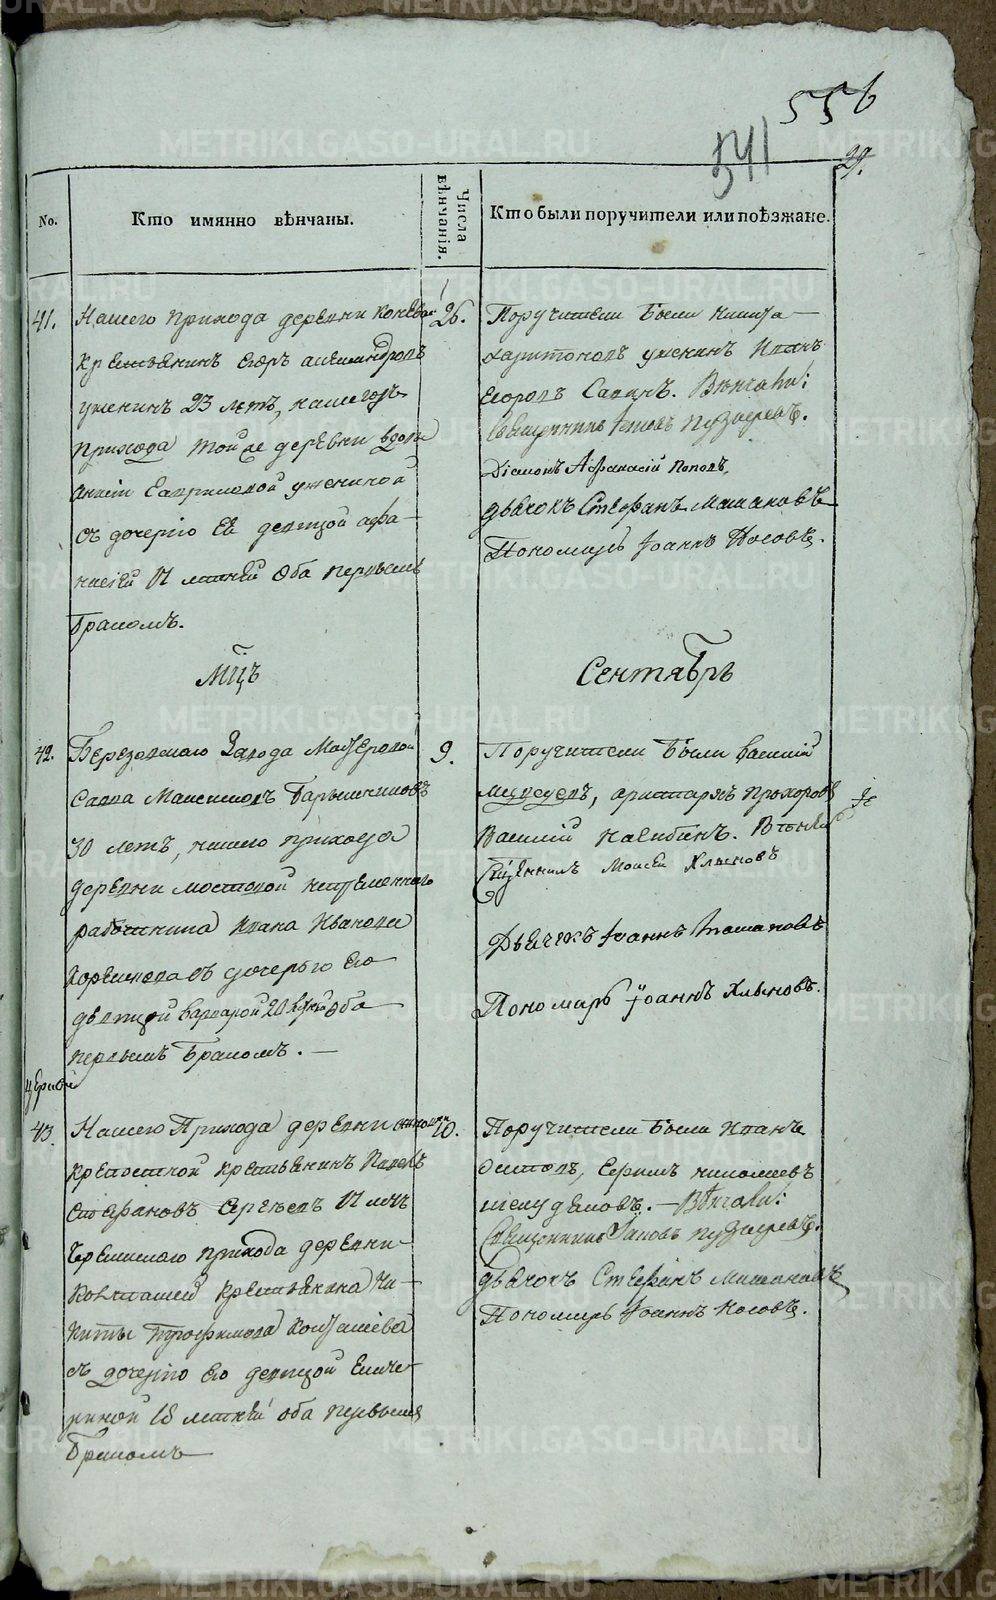 556
541
29.
No.
Кто имянно вѣнчаны.
Числа вѣнчанія.
Кто были поручители или поѣзжане.
41.
Нашего прихода деревни Коневой
крестьянинъ Егоръ Александровъ
ужекинъ 23 летъ, нашегожъ
прихода тойже деревни вдовы
Гавриловой ужекиной
съ дочерію Ея девицой Афа-
насіей 17 летней оба первымъ
бракомъ.
26.
Поручители были Никита
харитоновъ ужекинъ Иванъ
Егоровъ Савинъ. Вѣнчали:
Священникъ Іаковъ Пузыревъ.
Діаконъ Афанасій Поповъ,
дьячокъ Стефанъ Машановъ
Пономарь Іоаннъ Носовъ.
Мцъ
Сентябрь
42.
Березовскаго Завода Мастеровой
Савва Максимовъ Барышниковъ
30 летъ, нашего прихода
деревни мостовой непременнаго
работника Ивана Иванова
съ дочерью его
девицой Варварой 20 лѣтней оба
первымъ бракомъ.
9.
Поручители были Василій
прохоровъ
Василій Назебинъ.
Священникъ Моисей Хлыновъ
Дьячекъ Іоаннъ Топановъ
Пономарь Іоаннъ Хлыновъ.
43.
Нашего Прихода деревни
крепостной крестьянинъ Павелъ
Стефановъ Сергѣевъ 17 летъ
прихода деревни
крестьянина Ни-
киты Трофимова Колташева
съ дочерію его девицой Екате-
риной 18 летней оба первымъ
бракомъ
10.
Поручители были Иванъ
Осиповъ, Ефимъ николаевъ
шелудяковъ. Вѣнчали:
Священникъ Іаковъ пузыревъ.
дьячокъ Стефанъ Машановъ
Пономарь Іоаннъ Носовъ.
METRIKI.GASO-URAL.RU